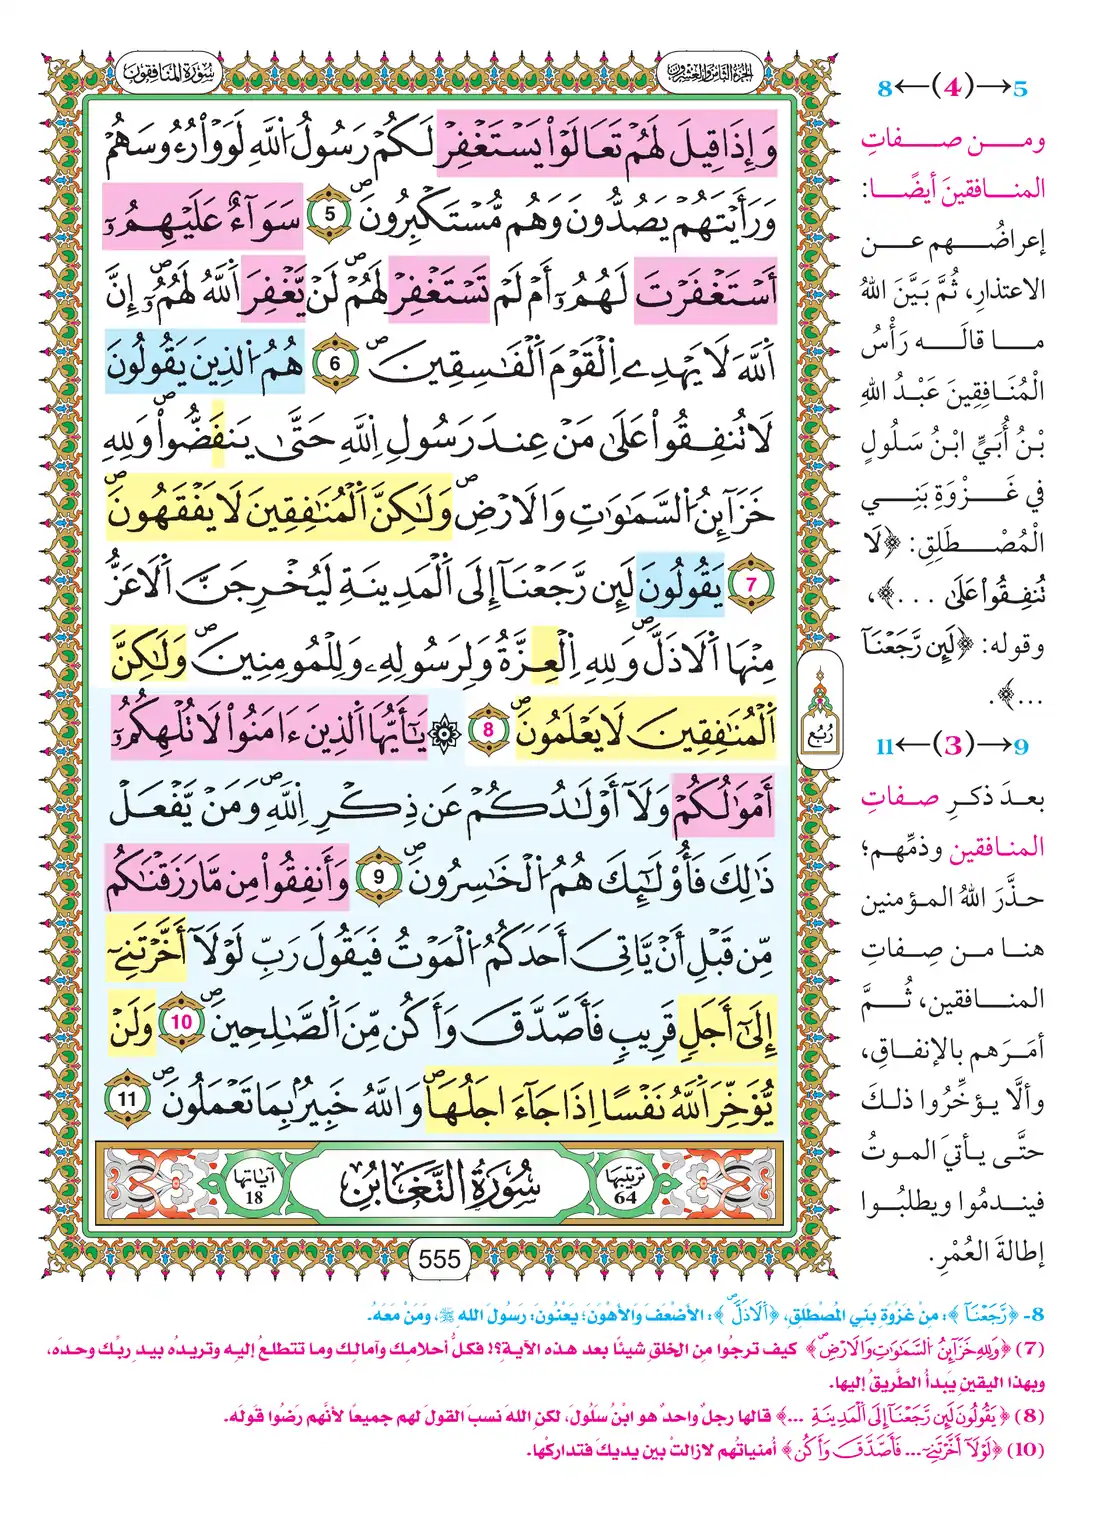 الجزء الثامن والعشرون
سورة المنافقون
وَإِذَا قِيلَ لَهُمْ تَعَالَوْاْ يَسْتَغْفِرْ لَكُمْ رَسُولُ اُللَّهِ لَوَوْاْ رُءُوسَهُمْ
وَرَأَيْتَهُمْ يَصُدُّونَ وَهُم مُّسْتَكْبِرُونَ 5 سَوَآءٌ عَلَيْهِمُۥٓ
أَسْتَغْفَرْتَ لَهُمُۥٓ أَمْ لَمْ تَسْتَغْفِرْ لَهُمْ لَنْ يَّغْفِرَ اَللَّهُ لَهُمُۥٓ إِنَّ
اَللَّهَ لَا يَهْدِے اِلْقَوْمَ اَلْفَٰسِقِينَ 6 هُمُ اُلذِينَ يَقُولُونَ
لَا تُنفِقُواْ عَلَىٰ مَنْ عِندَ رَسُولِ اِللَّهِ حَتَّىٰ يَنفَضُّواْ وَلِلهِ
خَزَآئِنُ اُلسَّمَٰوَٰتِ وَالَارْضِ وَلَٰكِنَّ اَلْمُنَٰفِقِينَ لَا يَفْقَهُونَ
7 يَقُولُونَ لَئِن رَّجَعْنَآ إِلَى اَلْمَدِينَةِ لَيُخْرِجَنَّ اَلَاعَزُّ
مِنْهَا اَلَاذَلَّ وَلِلهِ اِلْعِزَّةُ وَلِرَسُولِهِۦ وَلِلْمُومِنِينَ وَلَٰكِنَّ
اَلْمُنَٰفِقِينَ لَا يَعْلَمُونَ 8 ۞ يَٰٓأَيُّهَا اَلذِينَ ءَامَنُواْ لَا تُلْهِكُمُۥٓ
أَمْوَٰلُكُمْ وَلَآ أَوْلَٰدُكُمْ عَن ذِكْرِ اِللَّهِ وَمَنْ يَّفْعَلْ
ذَٰلِكَ فَأُوْلَٰٓئِكَ هُمُ اُلْخَٰسِرُونَ 9 وَأَنفِقُواْ مِن مَّا رَزَقْنَٰكُم
مِّن قَبْلِ أَنْ يَّاتِىَ أَحَدَكُمُ اُلْمَوْتُ فَيَقُولَ رَبِّ لَوْلَآ أَخَّرْتَنِےٓ
إِلَىٰٓ أَجَلٍ قَرِيبٍ فَأَصَّدَّقَ وَأَكُن مِّنَ اَلصَّٰلِحِينَ 10 وَلَنْ
يُّؤَخِّرَ اَللَّهُ نَفْسًا اِذَا جَآءَ اجَلُهَا وَاللَّهُ خَبِيرٌۢ بِمَا تَعْمَلُونَ 11
ترتيبها 64 سورة التغابن آياتها 18
555
رُبُع
5→(4)←8
ومــن صــفاتِ
المنافقينَ أيضًا:
إعراضُهم عن
الاعتذارِ، ثُمَّ بَيَّنَ اللهُ
ما قالَه رَأْسُ
الْمُنَافِقِينَ عَبْدُ اللهِ
بْنُ أُبَيٍّ ابْنُ سَلُولٍ
في غَزْوَةِ بَنِي
الْمُصْطَلِقِ: ﴿لَا
تُنفِقُواْ عَلَىٰ ...﴾،
وقوله: ﴿لَئِن رَّجَعْنَآ
...﴾.
9→(3)←11
بعدَ ذكرِ صفاتِ
المنافقين وذمِّهم؛
حذَّرَ اللهُ المؤمنين
هنا من صِفاتِ
المنافقين، ثُمَّ
أمَرَهم بالإنفاقِ،
وألَّا يؤخِّرُوا ذلكَ
حتَّى يأتيَ الموتُ
فيندمُوا ويطلبُوا
إطالةَ العُمْرِ.
8- ﴿رَّجَعْنَآ﴾: مِنْ غَزْوَةِ بَنِي الْمُصْطَلِقِ، ﴿اَلَاذَلَّ﴾: الأضْعَفَ وَالأهْوَنَ؛ يَعْنُونَ: رَسُولَ اللهِ ﷺ، وَمَنْ مَعَهُ.
(7) ﴿وَلِلهِ خَزَآئِنُ اُلسَّمَٰوَٰتِ وَالَارْضِ﴾ كيف ترجُوا مِن الخلقِ شيئًا بعد هذه الآيةِ؟! فكلُّ أحلامِك وآمالِك وما تتطلعُ إليه وتريدُه بيدِ ربِّك وحدَه،
وبهذا اليقينِ يَبدأُ الطَّريقُ إليها.
(8) ﴿يَقُولُونَ لَئِن رَّجَعْنَآ إِلَى اَلْمَدِينَةِ ...﴾ قالها رجلٌ واحدٌ هو ابْنُ سَلُولَ، لكن اللهَ نسبَ القولَ لهم جميعًا لأنَّهم رَضُوا قَولَه.
(10) ﴿لَوْلَآ أَخَّرْتَنِےٓ ... فَأَصَّدَّقَ وَأَكُن﴾ أمنياتُهم لازالتْ بين يديكَ فتداركْها.